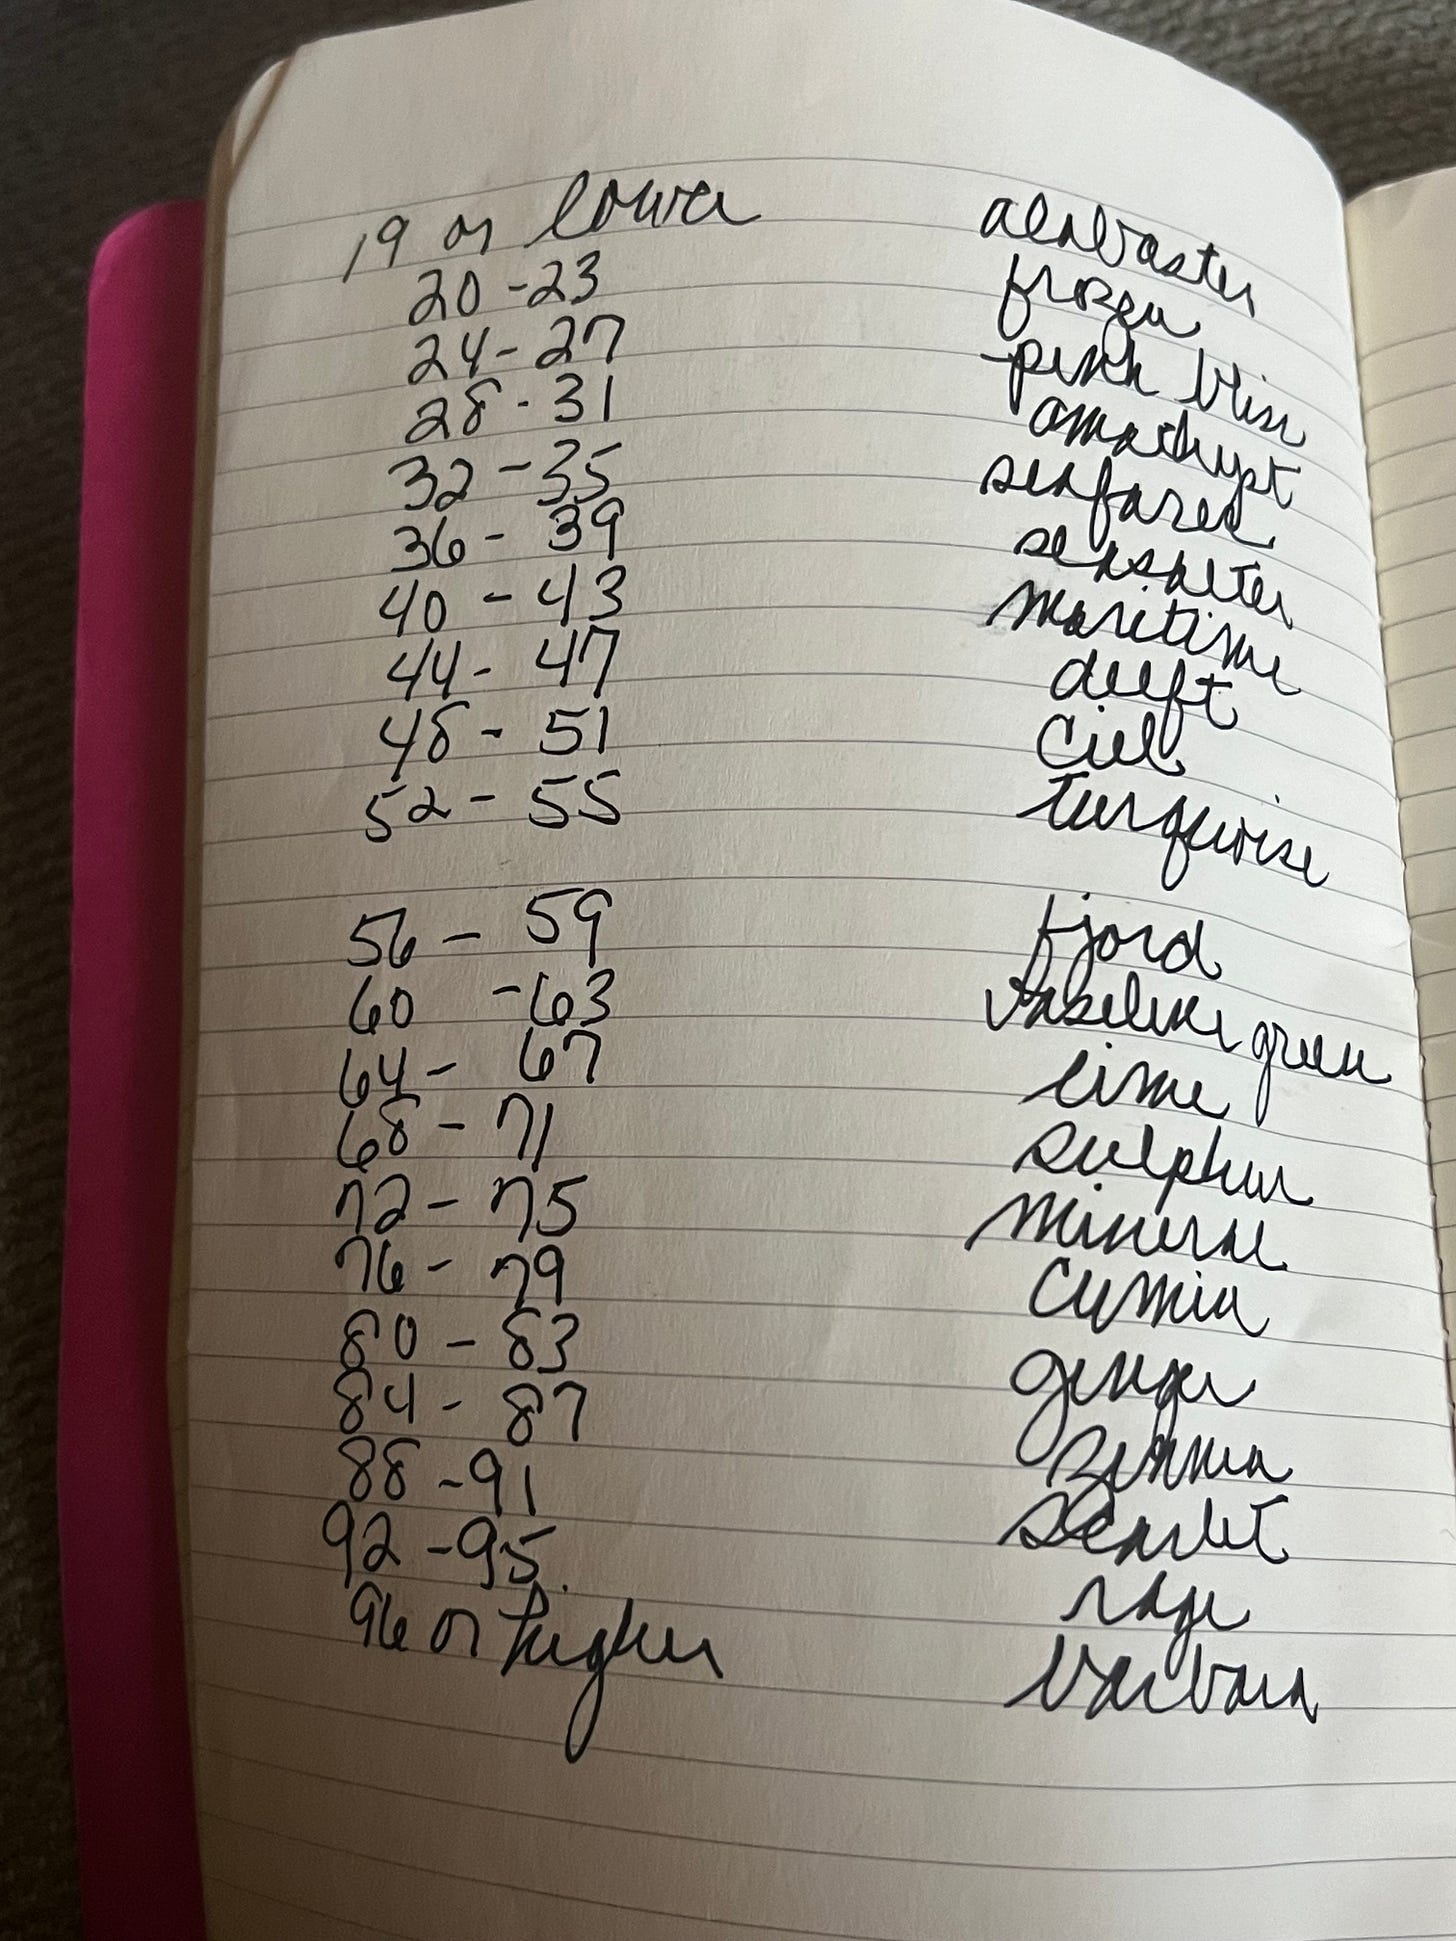 19 or lower alabaster
20-23 frozen
24-27 pink bliss
28-31 amethyst
32-35 seafarer
36-39 seasalter
40-43 maritime
44-47 delft
48-51 Ciel
52-55 turquoise
56-59 fjord
60-63 vaseline green
64-67 lime
68-71 sulphur
72-75 mineral
76-79 cumin
80-83 ginger
84-87 zinnia
88-91 scarlet
92-95. rage
96 or higher barbara